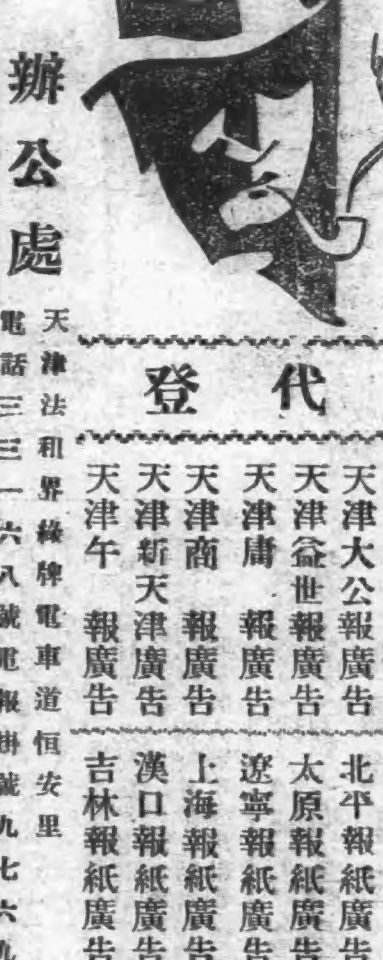 代登
天津大公報廣告
天津益世報廣告
天津庸報廣告
天津商報廣告
天津新天津廣告
天津午報廣告
北平報紙廣告
太原報紙廣告
遼寧報紙廣告
上海報紙廣告
漢口報紙廣告
吉林報紙廣告
辦公處
天津法租界綠牌電車道恒安里
電話三三一六八號電報掛號九七六九